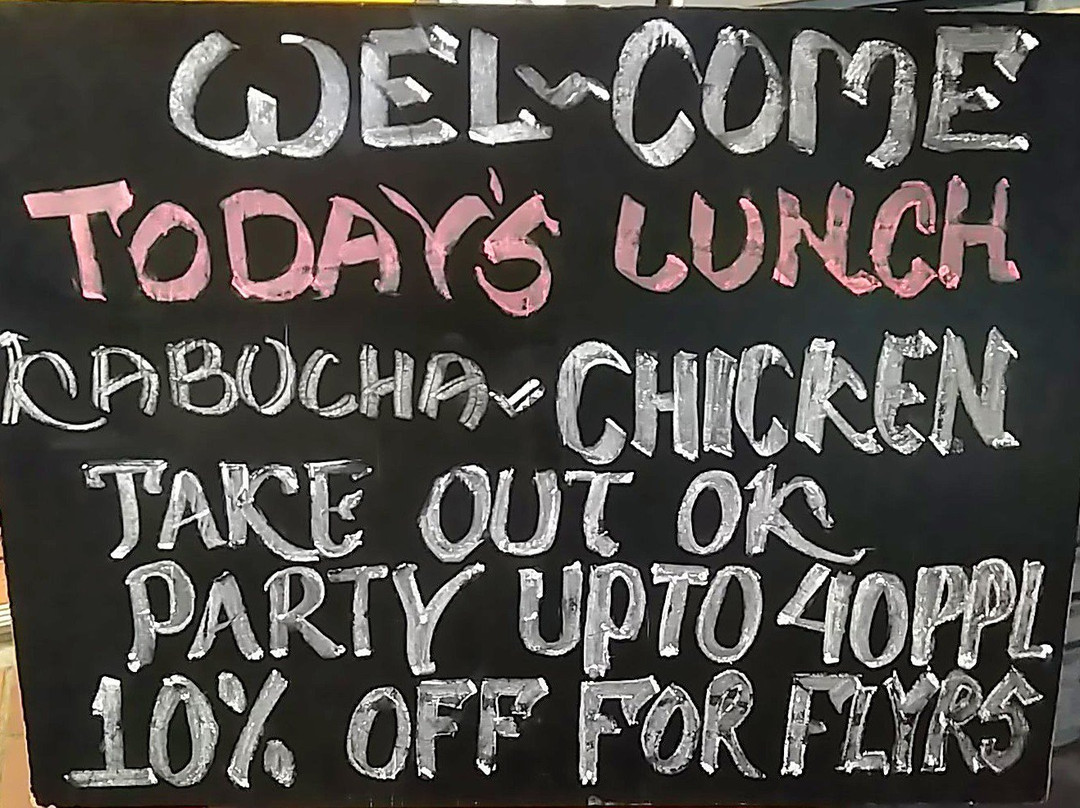 WEL~COME
TODAY'S LUNCH
KABUCHA~CHICKEN
TAKE OUT OK
PARTY UPTO 40PPL
10% OFF FOR FLYRS